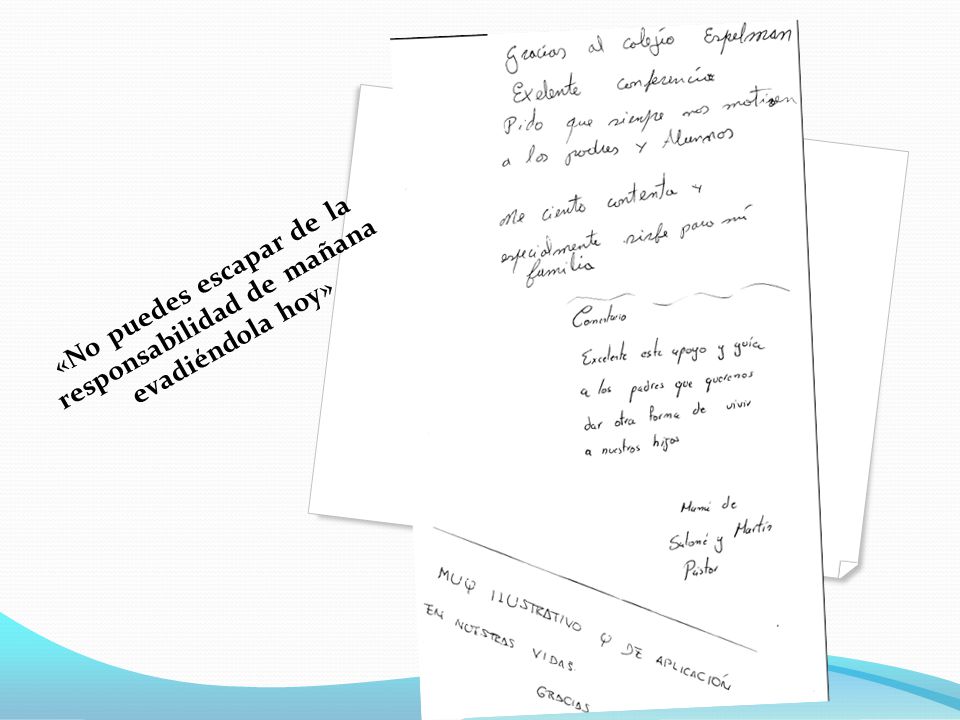 «No puedes escapar de la
responsabilidad de mañana
evadiéndola hoy»
Gracias al colegio Espelman
Exelente conferencia
Pido que sienpre nos motiven
a los padres y Alumnos
Me ciento contenta y
especialmente sirbe para mi
familia
Comentario
Excelente este apoyo y guía
a los padres que queremos
dar otra forma de vivir
a nuestros hijos
Mamá de
Salomé y Martín
Pástor
MUY ILUSTRATIVO Y DE APLICACIÓN
EN NUESTRAS VIDAS.
GRACIAS